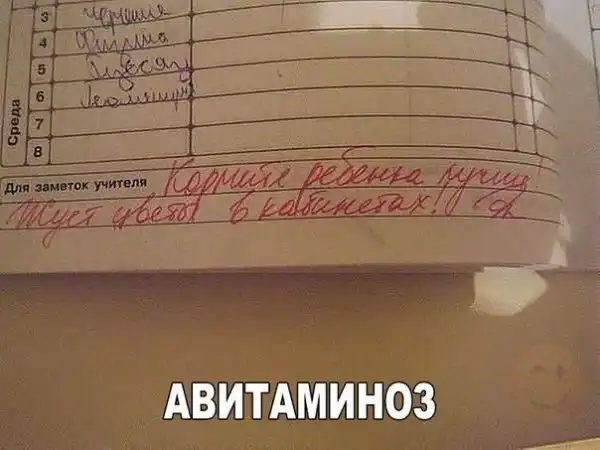 3 Черчение
4 Физика
5
6 Геометрия
7
8
Среда
Для заметок учителя Кормите ребенка лучше!
Жует цветы в кабинетах!
АВИТАМИНОЗ